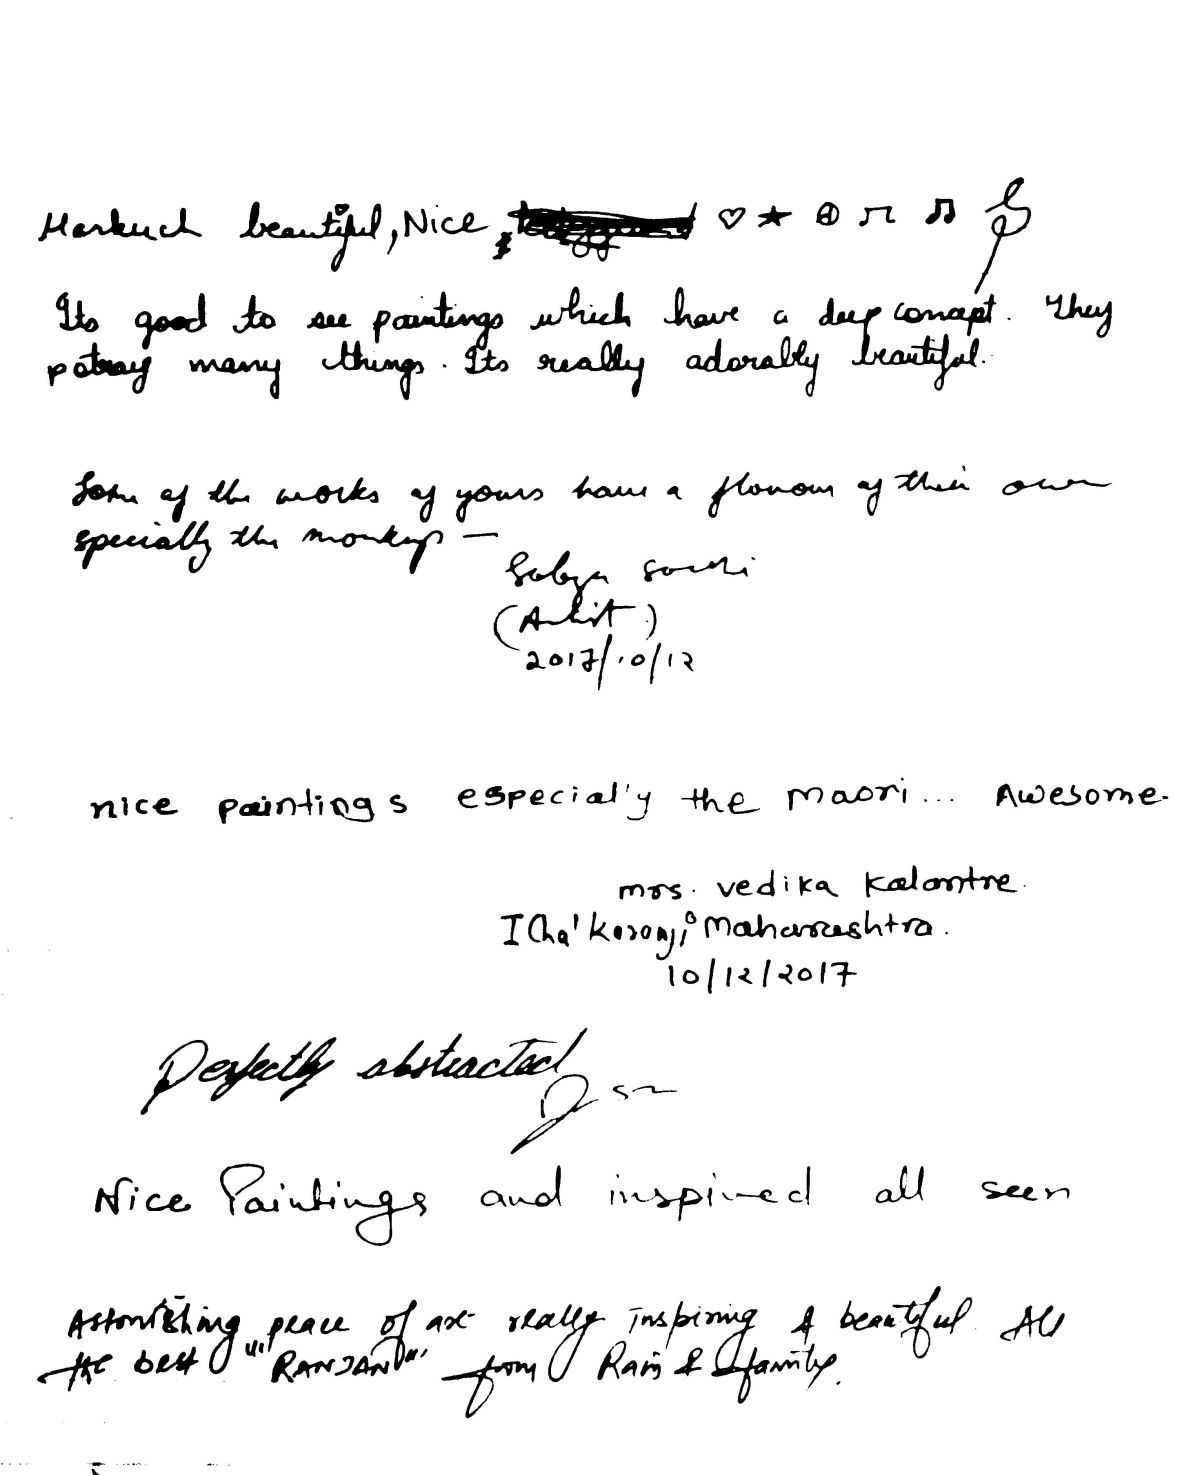 beautiful, Nice,
Its good to see paintings which have a deep concept. They
potray many things. Its really adorably beautiful.
Some of the works of yours have a flavour of their own
specially the monkey —
(Ankit)
2017/10/12
nice paintings especially the maori... Awesome.
mrs. vedika Kalantre.
Icha'Karanji Maharashtra.
10/12/2017
Perfectly abstracted
Nice Paintings and inspired all seen
Astonishing peace of art really inspiring & beautiful All
the best "RANJAN" from Rain & family.